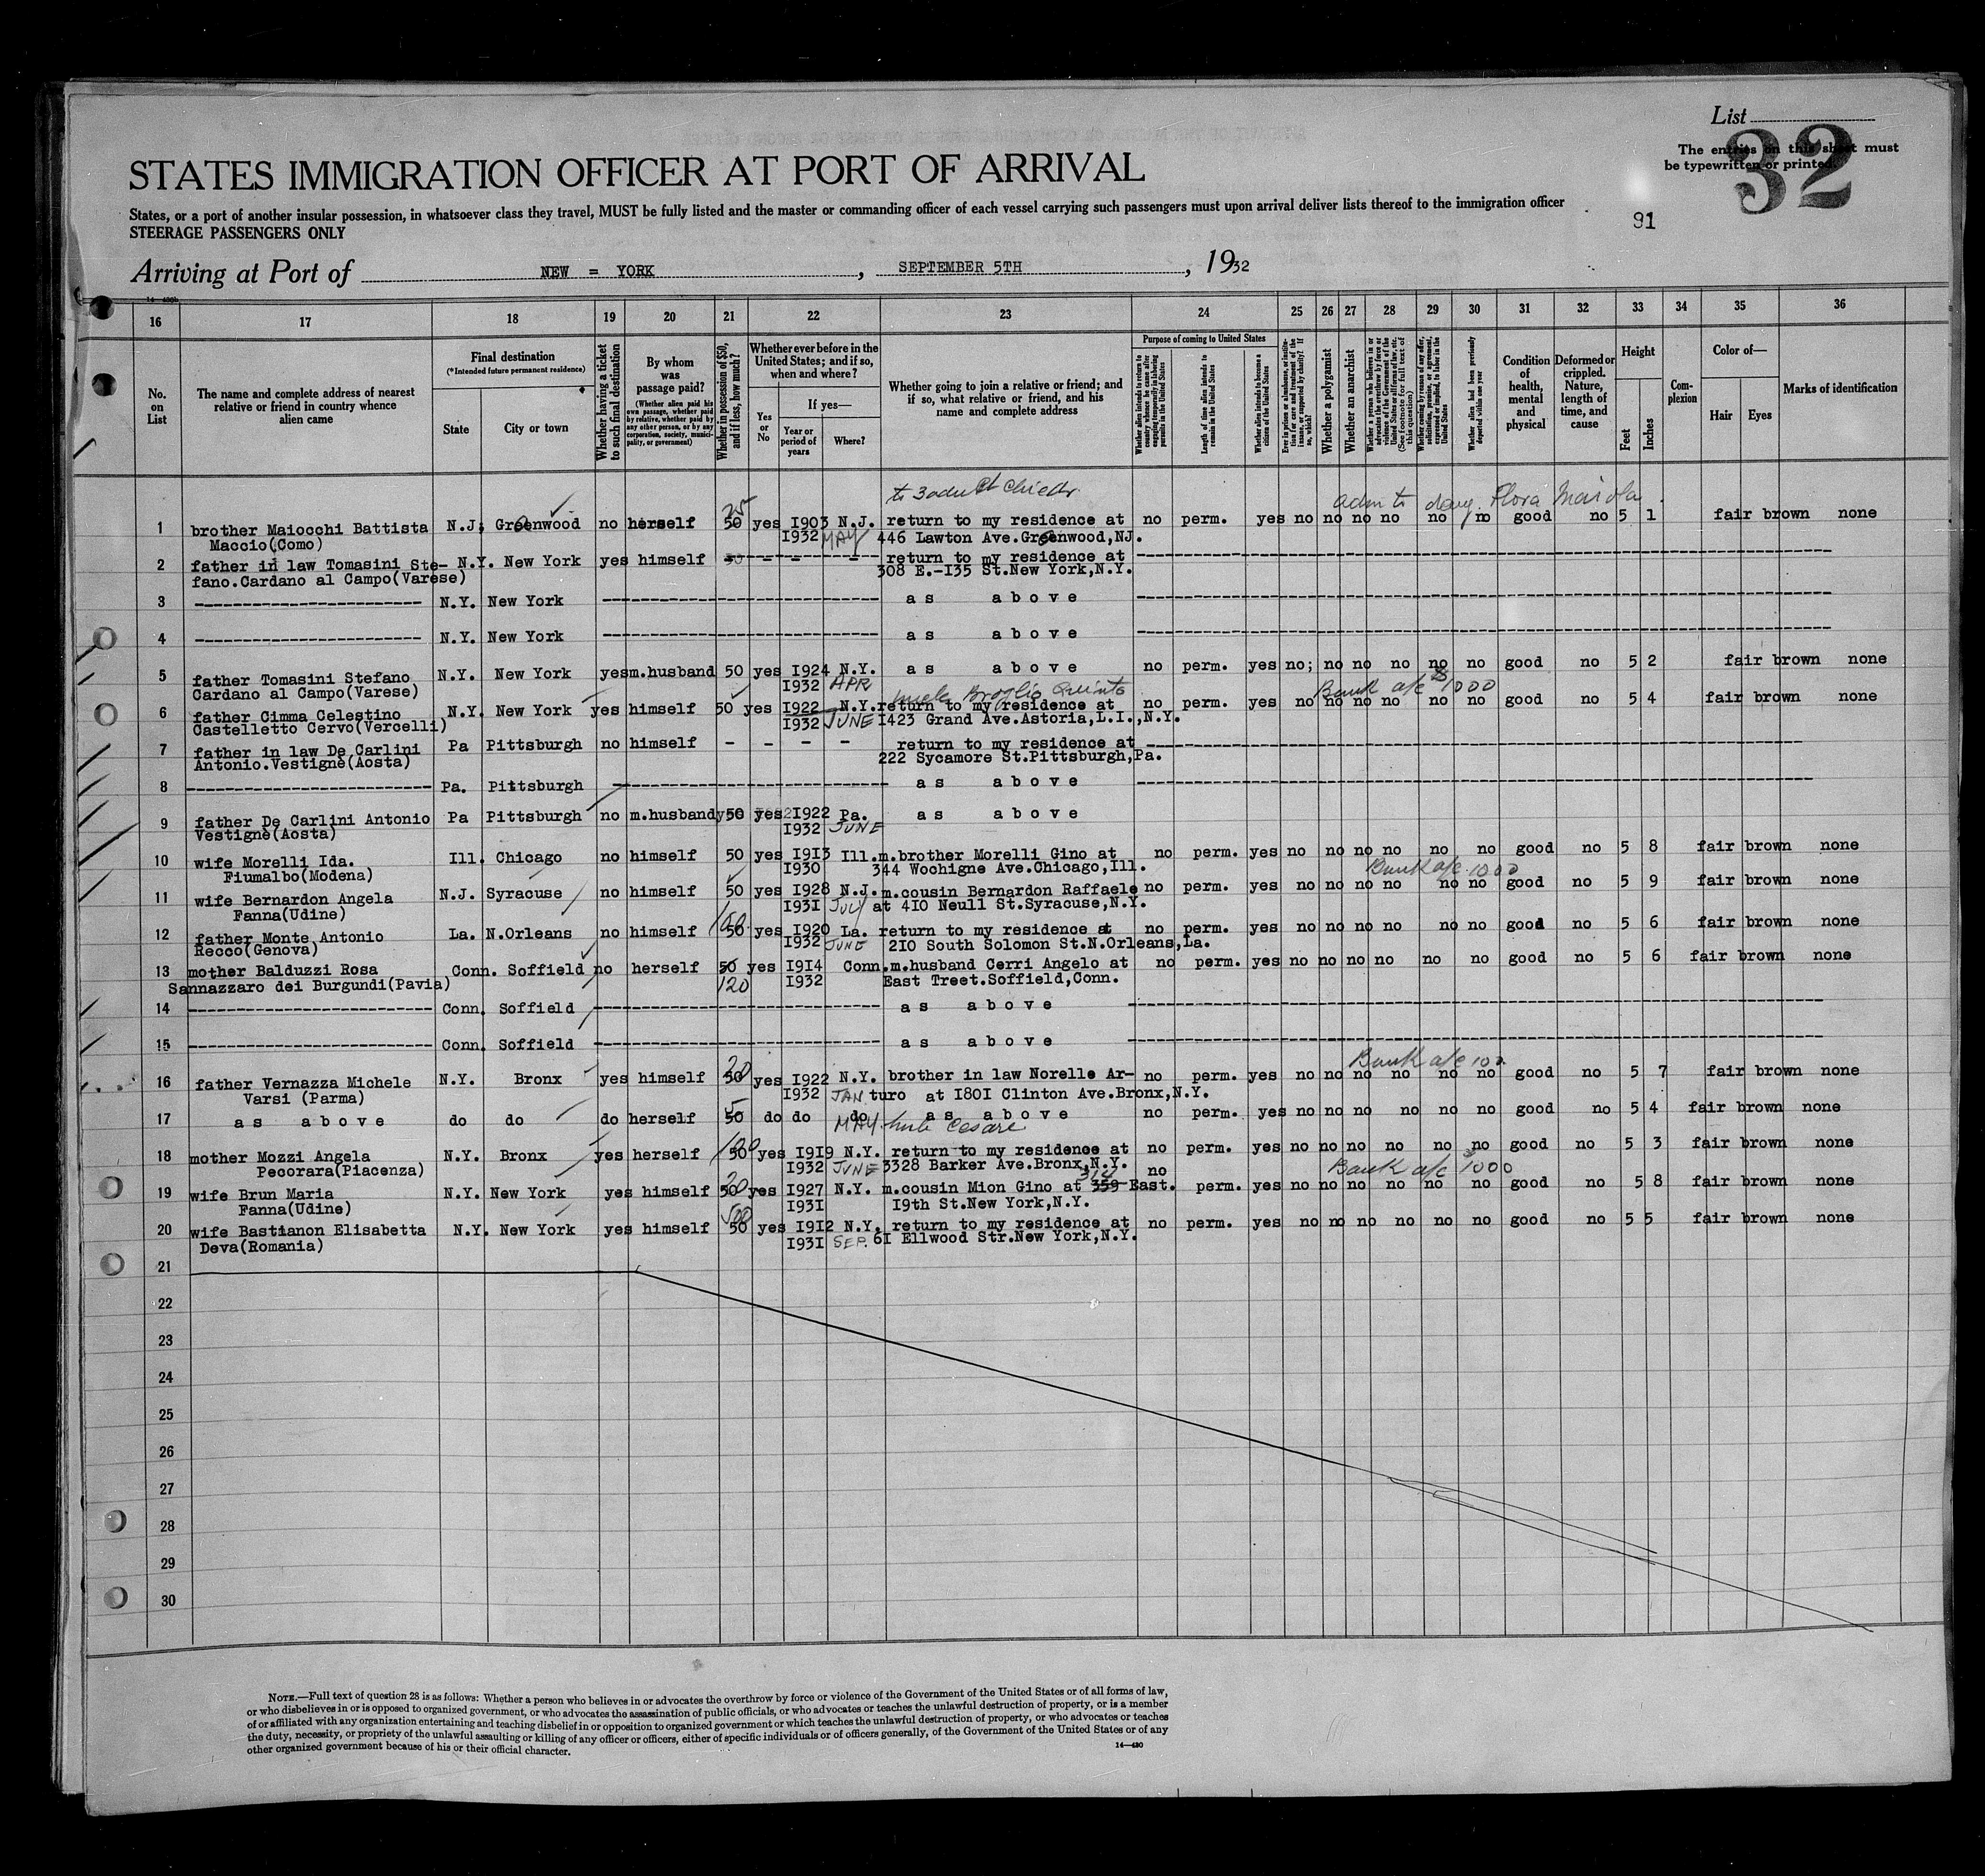 List
32
The entries on this sheet must
be typewritten or printed.
STATES IMMIGRATION OFFICER AT PORT OF ARRIVAL
States, or a port of another insular possession, in whatsoever class they travel, MUST be fully listed and the master or commanding officer of each vessel carrying such passengers must upon arrival deliver lists thereof to the immigration officer
STEERAGE PASSENGERS ONLY
91
Arriving at Port of NEW = YORK , SEPTEMBER 5TH , 1932
16 17 18 19 20 21 22 23 24 25 26 27 28 29 30 31 32 33 34 35 36
No. on List
The name and complete address of nearest relative or friend in country whence alien came
Final destination
(*Intended future permanent residence)
State
City or town
Whether having a ticket to such final destination
By whom was passage paid?
(Whether alien paid his own passage, whether paid by relative, whether paid by any other person, or by any corporation, society, municipality, or government)
Whether in possession of $50, and if less, how much?
Whether ever before in the United States; and if so, when and where?
Yes or No
If yes—
Year or period of years
Where?
Whether going to join a relative or friend; and if so, what relative or friend, and his name and complete address
Purpose of coming to United States
Length of time alien intends to remain in the United States
Whether alien intends to become a citizen of the United States
Whether a polygamist
Whether an anarchist
Condition of health, mental and physical
Deformed or crippled. Nature, length of time, and cause
Height
Feet
Inches
Complexion
Color of—
Hair
Eyes
Marks of identification
adm to daug. Flora Maiola
1 brother Maiocchi Battista N.J. Greenwood no herself 50 25 yes I903 N.J. return to my residence at no perm. yes no no no no no no good no 5 1 fair brown none
Maccio(Como) I932 MAY 446 Lawton Ave.Greenwood,NJ.
2 father in law Tomasini Ste- N.Y. New York yes himself - - - - return to my residence at
fano.Cardano al Campo(Varese) 308 E.-I35 St.New York,N.Y.
3 N.Y. New York as above
4 N.Y. New York as above
5 father Tomasini Stefano N.Y. New York yes m.husband 50 yes I924 N.Y. as above no perm. yes no; no no no no no good no 5 2 fair brown none
Cardano al Campo(Varese) I932 APR
uncle Broglio Quinto Bank a/c $1000
6 father Cimma Celestino N.Y. New York yes himself 50 yes I922 N.Y. return to my residence at no perm. yes no no no no no no good no 5 4 fair brown none
Castelletto Cervo(Vercelli) I932 JUNE I423 Grand Ave.Astoria,L.I.,N.Y.
7 father in law De Carlini Pa Pittsburgh no himself - - - - return to my residence at
Antonio.Vestignè(Aosta) 222 Sycamore St.Pittsburgh,Pa.
8 Pa. Pittsburgh as above
9 father De Carlini Antonio Pa Pittsburgh no m.husband y50 yes I922 Pa. as above
Vestignè(Aosta) I932 JUNE
10 wife Morelli Ida. Ill. Chicago no himself 50 yes I9I3 Ill. m.brother Morelli Gino at no perm. yes no no no no no no good no 5 8 fair brown none
Fiumalbo(Modena) I930 344 Wochigne Ave.Chicago,Ill.
Bank a/c 1000
11 wife Bernardon Angela N.J. Syracuse no himself 50 yes I928 N.J. m.cousin Bernardon Raffaele no perm. yes no no no no no no good no 5 9 fair brown none
Fanna(Udine) I93I JULY at 4I0 Neull St.Syracuse,N.Y.
12 father Monte Antonio La. N.Orleans no himself 50 100 yes I920 La. return to my residence at no perm. yes no no no no no no good no 5 6 fair brown none
Recco(Genova) I932 JUNE 2I0 South Solomon St.N.Orleans,La.
13 mother Balduzzi Rosa Conn. Soffield no herself 50 yes I9I4 Conn. m.husband Cerri Angelo at no perm. yes no no no no no no good no 5 6 fair brown none
Sannazzaro dei Burgundi(Pavia) 120 I932 East Treet.Soffield,Conn.
14 Conn. Soffield as above
15 Conn. Soffield as above
Bank a/c
16 father Vernazza Michele N.Y. Bronx yes himself 50 20 yes I922 N.Y. brother in law Norelle Ar- no perm. yes no no no no no no good no 5 7 fair brown none
Varsi (Parma) I932 JAN turo at I80I Clinton Ave.Bronx,N.Y.
17 as above do do do herself 50 5 do do do as above no perm. yes no no no no no no good no 5 4 fair brown none
MAY Cesare
18 mother Mozzi Angela N.Y. Bronx yes herself 50 100 yes I9I9 N.Y. return to my residence at no perm. yes no no no no no no good no 5 3 fair brown none
Pecorara(Piacenza) I932 JUNE 3328 Barker Ave.Bronx,N.Y.
Bank a/c $1000
19 wife Brun Maria N.Y. New York yes himself 50 20 yes I927 N.Y. m.cousin Mion Gino at 359 East. no perm. yes no no no no no no good no 5 8 fair brown none
Fanna(Udine) I93I I9th St.New York,N.Y.
20 wife Bastianon Elisabetta N.Y. New York yes himself 50 500 yes I9I2 N.Y. return to my residence at no perm. yes no no no no no no good no 5 5 fair brown none
Deva(Romania) I93I SEP. 6I Ellwood Str.New York,N.Y.
21
22
23
24
25
26
27
28
29
30
NOTE.—Full text of question 28 is as follows: Whether a person who believes in or advocates the overthrow by force or violence of the Government of the United States or of all forms of law,
or who disbelieves in or is opposed to organized government, or who advocates the assassination of public officials, or who advocates or teaches the unlawful destruction of property, or is a member
of or affiliated with any organization entertaining and teaching disbelief in or opposition to organized government or which teaches the unlawful destruction of property, or who advocates or teaches
the duty, necessity, or propriety of the unlawful assaulting or killing of any officer or officers, either of specific individuals or of officers generally, of the Government of the United States or of any
other organized government because of his or their official character.
14—430